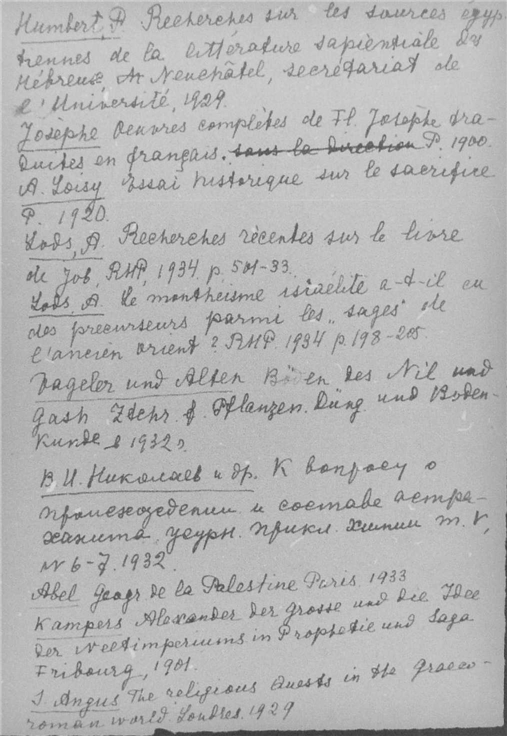 Humbert, P. Recherches sur les sources égyp-
tiennes de la littérature sapientiale des
Hébreux. Neuchâtel, secrétariat de
l'Université, 1929.
Josèphe Oeuvres complètes de Fl. Josèphe tra-
duites en français. sous la direction P. 1900.
A. Loisy Essai historique sur le sacrifice
P. 1920.
Lods, A. Recherches récentes sur le livre
de Job, RHP, 1934 p. 501-33.
Lods, A. Le monthéisme israélite a-t-il eu
des précurseurs parmi les „sages" de
l'ancien orient? RHP. 1934 p. 198-205.
Vageler und Alten Böden des Nil und
Gash Ztchr. f. Pflanzen. Düng und Boden-
kunde 1932
В. И. Николаев и др. К вопросу о
происхождении и составе астра-
ханита журн. прикл. химии т. V,
N 6-7. 1932.
Abel Geogr de la Palestine Paris 1933
Kampers Alexander der grosse und die Idee
der Weltimperiums in Prophetie und Saga
Fribourg, 1901.
S. Angus The religious Quests in the Graeco-
roman world. Londres. 1929